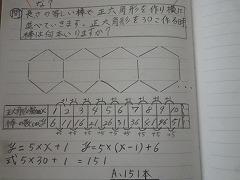 な?
問 長さの等しい棒で正六角形を作り横に
並べていきます。正六角形を30こ作る時
棒は何本いりますか?
正六角形の数(個)x 1 2 3 4 5 6 7 8 9 10
棒の数(本)y 6 11 16 21 26 31 36 41 46 51
+5 +5 +5 +5 +5 +5 +5 +5 +5
y=5×x+1 y=5×(x-1)+6
式 5×30+1=151
A.151本